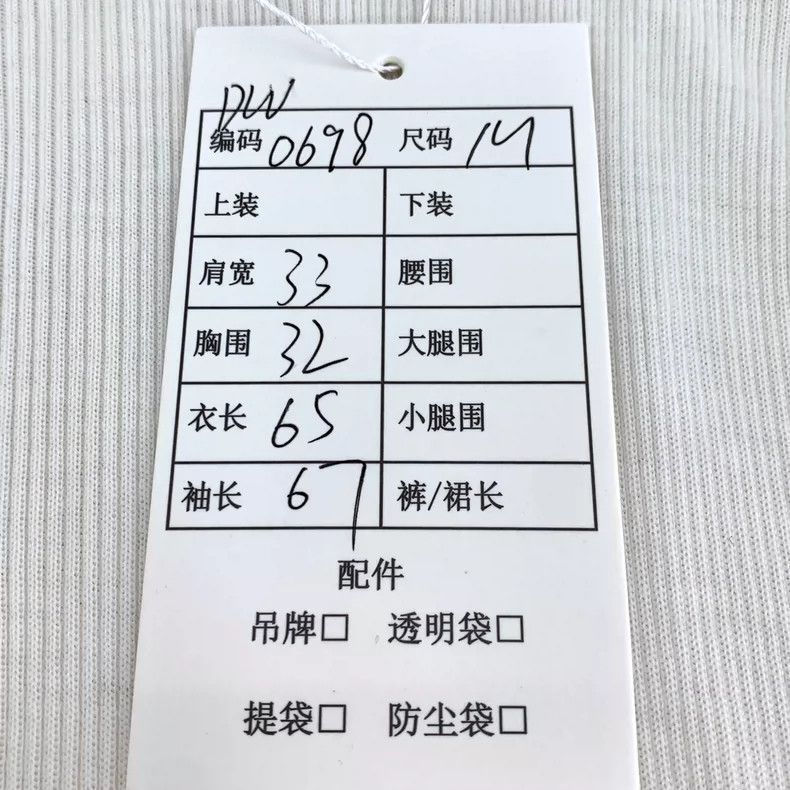 DW
编码 0698 尺码 M
上装 下装
肩宽 33 腰围
胸围 32 大腿围
衣长 65 小腿围
袖长 67 裤/裙长
配件
吊牌□ 透明袋□
提袋□ 防尘袋□